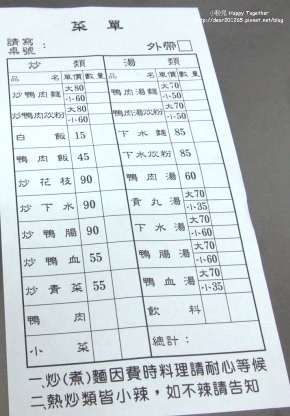 小粉兒 Happy Together
http://dear201265.pixnet.net/blog
菜單
請寫桌號
外帶
炒類 湯類
品名 單價 數量 品名 單價 數量
炒鴨肉麵 大80 小60 鴨肉湯麵 大70 小50
炒鴨肉炊粉 大80 小60 鴨肉湯炊粉 大70 小50
白飯 15 下水麵 85
鴨肉飯 45 下水炊粉 85
炒花枝 90 鴨肉湯 60
炒下水 90 貢丸湯 大70 小35
炒鴨腸 90 下水湯 大70 小60
炒鴨血 55 鴨腸湯 大70 小60
炒青菜 55 鴨血湯 大70 小35
鴨肉 飲料
小菜 總計:
一.炒(煮)麵因費時料理請耐心等候
二.熱炒類皆小辣,如不辣請告知